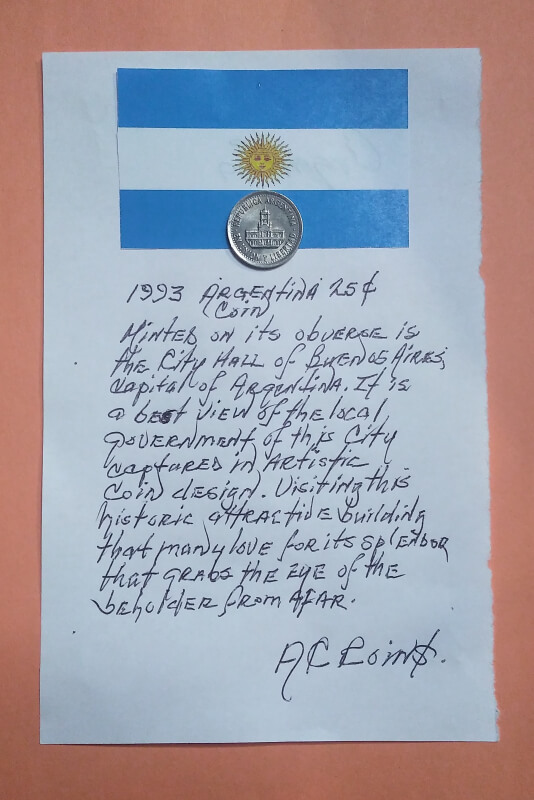 REPUBLICA ARGENTINA
EN UNION Y LIBERTAD
1993 ARGENTINA 25¢
COIN
MINTED ON its obverse is
the City HALL of BUENOS AIRES,
capital of ARGENTINA. It is
a best view of the local
government of this City
captured in Artistic
Coin design. Visiting this
historic attractive building
that many love for its splendor
that grabs the eye of the
beholder from AFAR.
AC Coin$.